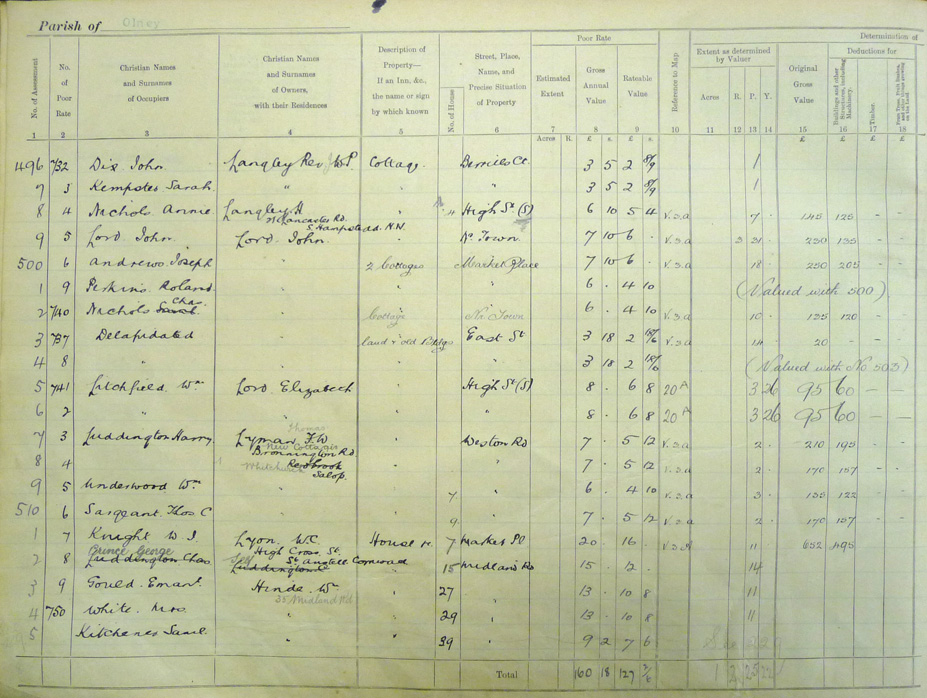 Parish of Olney
Poor Rate
Determination of
No. of Assessment
No. of Poor Rate
Christian Names and Surnames of Occupiers
Christian Names and Surnames of Owners, with their Residences
Description of Property— If an Inn, &c., the name or sign by which known
No. of House
Street, Place, Name, and Precise Situation of Property
Estimated Extent
Gross Annual Value
Rateable Value
Reference to Map
Extent as determined by Valuer
Acres R. P. Y.
Original Gross Value
Deductions for
Buildings and other Structures, including Machinery.
Timber.
1 2 3 4 5 6 7 8 9 10 11 12 13 14 15 16 17 18
Acres R. £ s. £ s. £ £
496 732 Dix John Langley Rev W P. Cottage Berries Ct. 3 5 2 8/9 1
7 3 Kempster Sarah " " 3 5 2 8/9 1
8 4 Nichols Annie Langley H 4 High St (S) 6 10 5 4 V.3.a 7 145 125 - -
Lancaster Rd.
S Hampstead. N.W.
9 5 Lord John Lord John Nr Town 7 10 6 - V.3.a 3 31 250 135 - -
500 6 Andrews Joseph " 2 Cottages Market Place 7 10 6 - V.3.a 18 250 205 - -
1 9 Perkins Roland " " 6 - 4 10 (Valued with 500)
2 740 Nichols Chas. Cottage Nr. Town 6 - 4 10 V.3.a 10 135 120 - -
3 737 Delapidated land & old Bldgs East St 3 18 2 18/6 V.3.a 14 20 - -
4 8 " " 3 18 2 18/6 (Valued with No 503)
5 741 Litchfield Wm Lord Elizabeth High St (S) 8 - 6 8 20A 3 26 95 60 — —
6 2 " " " 8 - 6 8 20A 3 26 95 60 — —
7 3 Luddington Harry Lyman F. W Weston Rd 7 - 5 12 V.3.a 2 210 195 - -
Thomas
New Cottages
Bronnington Rd
Whitchurch
Salop.
8 4 " " " 7 - 5 12 V.3.a 2 170 157 - -
9 5 Underwood Wm " 7 " 6 - 4 10 V.3.a 3 135 122 - -
510 6 Sargeant Thos C " 9 " 7 - 5 12 V.3.a 2 170 157 - -
1 7 Knight W J. Lyon W.C. House 7 Market Pl 20 - 16 - 11 652 495 - -
High Cross St.
St Austell Cornwall
Prince George
2 8 Luddington Chas 15 Midland Rd 15 - 12 - 14
3 9 Gould Eman'l Hinde Wm 27 " 13 - 10 8 11
35 Midland Rd
4 750 White Mrs " 29 " 13 - 10 8 11
5 Kitchener Saml. " 39 " 9 2 7 6
Total 160 18 127 2/6 1 2 25 22